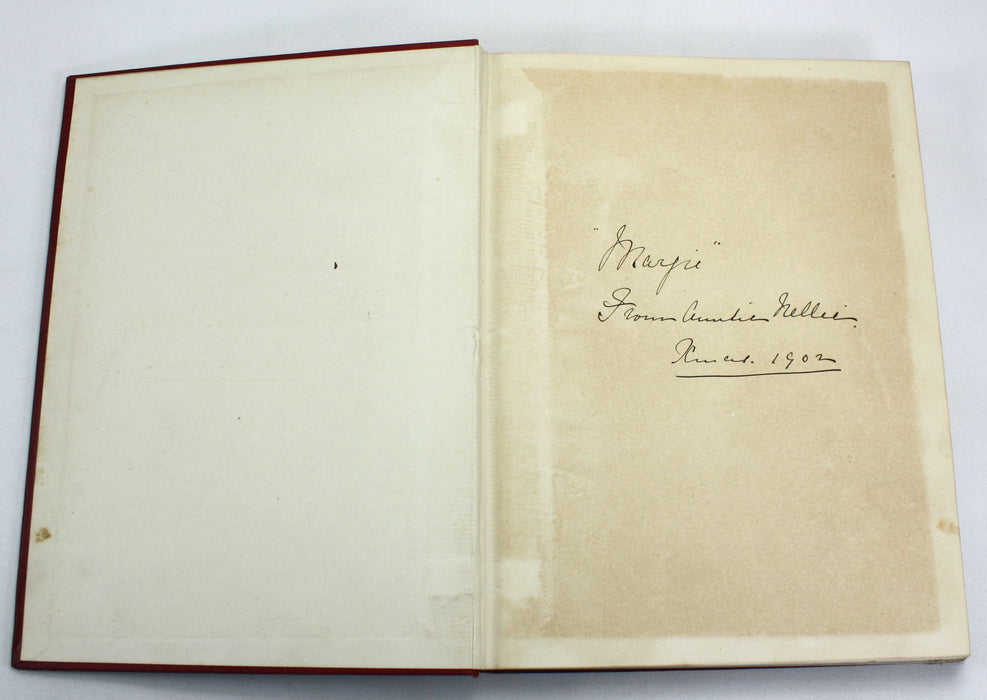 "Margie"
From Auntie Nellie.
Xmas. 1902